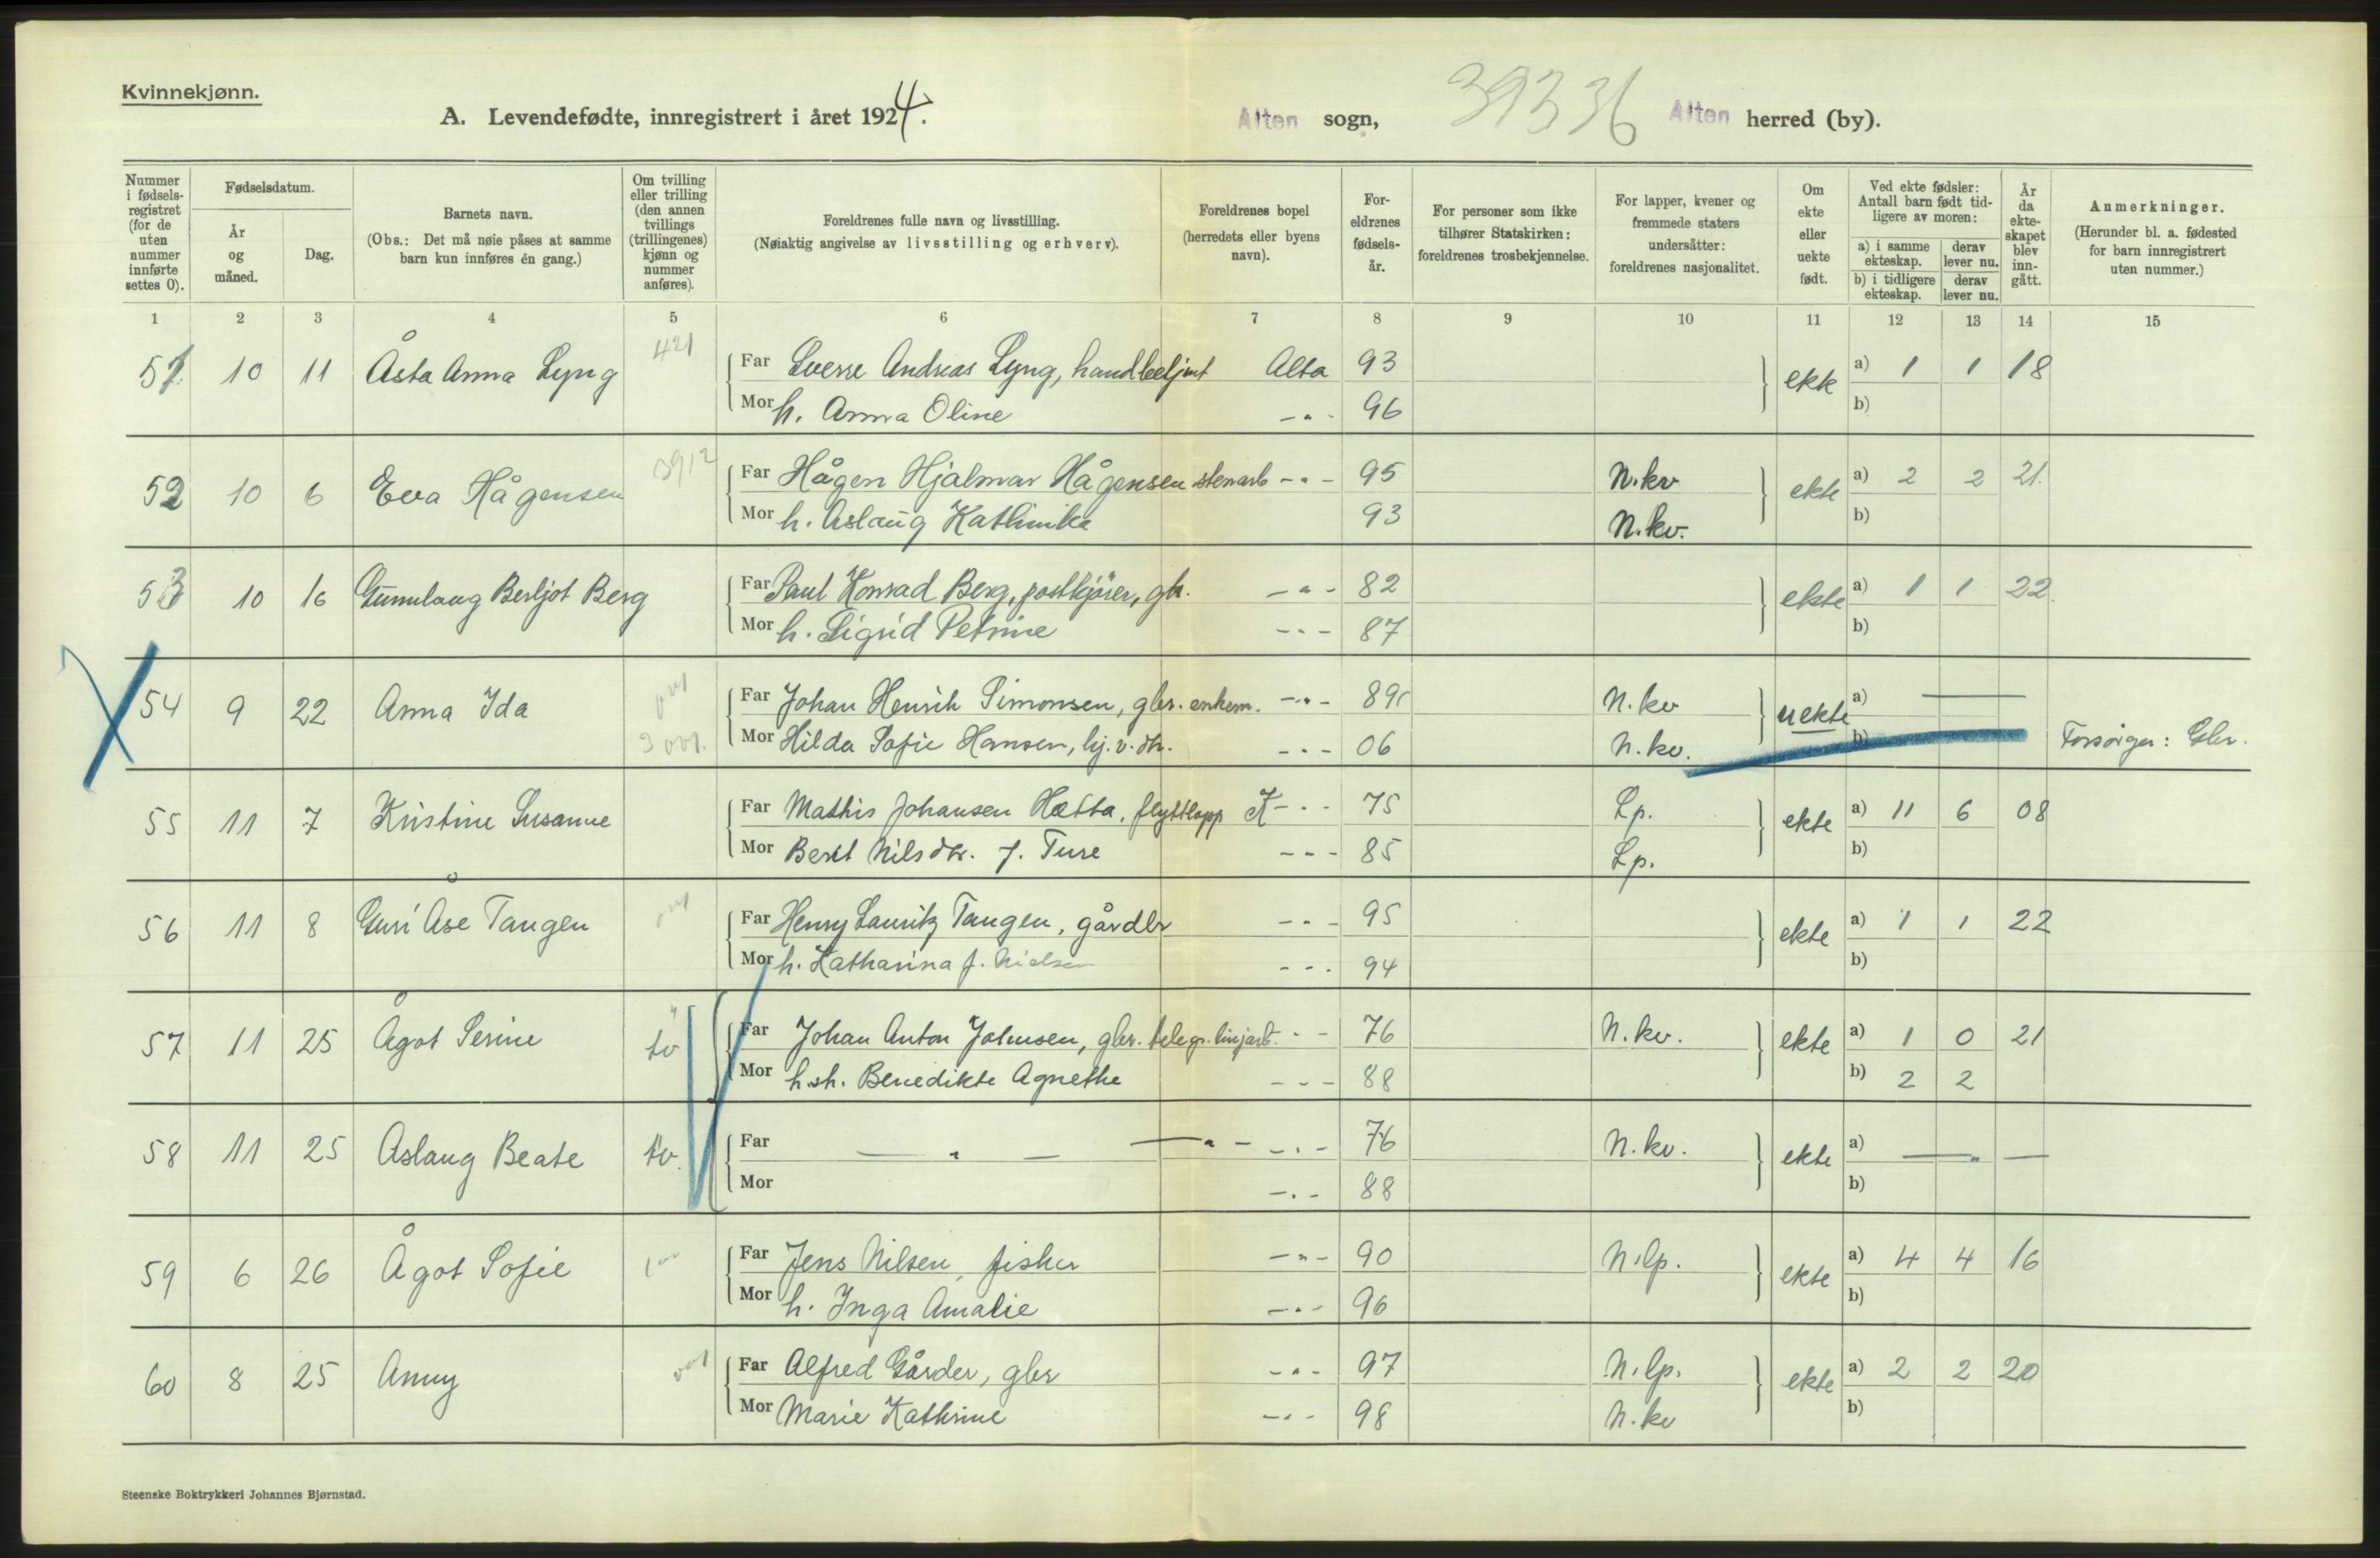 Kvinnekjønn.
A. Levendefødte, innregistrert i året 1924. Alten sogn, 39336 Alten herred (by).
Nummer i fødsels-registret (for de uten nummer innførte settes 0).
Fødselsdatum.
År og måned.
Dag.
Barnets navn.
(Obs.: Det må nøie påses at samme barn kun innføres én gang.)
Om tvilling eller trilling (den annen tvillings (trillingenes) kjønn og nummer anføres).
Foreldrenes fulle navn og livsstilling.
(Nøiaktig angivelse av livsstilling og erhverv).
Foreldrenes bopel (herredets eller byens navn).
For-eldrenes fødsels-år.
For personer som ikke tilhører Statskirken: foreldrenes trosbekjennelse.
For lapper, kvener og fremmede staters undersåtter: foreldrenes nasjonalitet.
Om ekte eller uekte født.
Ved ekte fødsler: Antall barn født tid-ligere av moren:
a) i samme ekteskap. derav lever nu.
b) i tidligere ekteskap. derav lever nu.
År da ekte-skapet blev inn-gått.
Anmerkninger.
(Herunder bl. a. fødested for barn innregistrert uten nummer.)
1 2 3 4 5 6 7 8 9 10 11 12 13 14 15
51 10 11 Åsta Anna Lyng 421 Far Sverre Andreas Lyng, handbetjent Alta 93 ekte a) 1 1 18
Mor h. Anna Oline -"- 96 b)
52 10 6 Eva Hågensen 3912 Far Hågen Hjalmar Hågensen stenarb -"- 95 N.kv ekte a) 2 2 21.
Mor h. Aslaug Kathinka 93 N.kv. b)
53 10 16 Gunnlaug Berljot Berg Far Paul Konrad Berg, postkjører, gbr. -"- 82 ekte a) 1 1 22.
Mor h. Sigrid Petrine -"- 87 b)
54 9 22 Anna Ida Far Johan Henrik Simonsen, gbr. enkem. -"- 89 N.kv uekte a) —
Mor Hilda Sofie Hansen, hj. v. dtr. -"- 06 N.kv. b) Forsørger: Gbr.
55 11 7 Kristine Susanne Far Mathis Johansen Hætta, flyttlapp K -"- 75 Lp. ekte a) 11 6 08
Mor Berit Nilsdtr. f. Ture -"- 85 Lp. b)
56 11 8 Guri Åse Tangen Far Henry Lauritz Tangen, gårdbr -"- 95 ekte a) 1 1 22
Mor h. Katharina f. Nielsen -"- 94 b)
57 11 25 Ågot Serine tv Far Johan Anton Johnsen, gbr. telegr. linjearb. -"- 76 N.kv. ekte a) 1 0 21
Mor h.h. Benedikte Agnethe -"- 88 b) 2 2
58 11 25 Aslaug Beate tv. Far — " — -"- -"- 76 N.kv. ekte a) — " —
Mor -"- 88 b)
59 6 26 Ågot Sofie Far Jens Nilsen, fisker -"- 90 N.lp. ekte a) 4 4 16
Mor h. Inga Amalie -"- 96 b)
60 8 25 Anny Far Alfred Gårder, gbr -"- 97 N.lp. ekte a) 2 2 20
Mor Marie Kathrine -"- 98 N.kv b)
Steenske Boktrykkeri Johannes Bjørnstad.